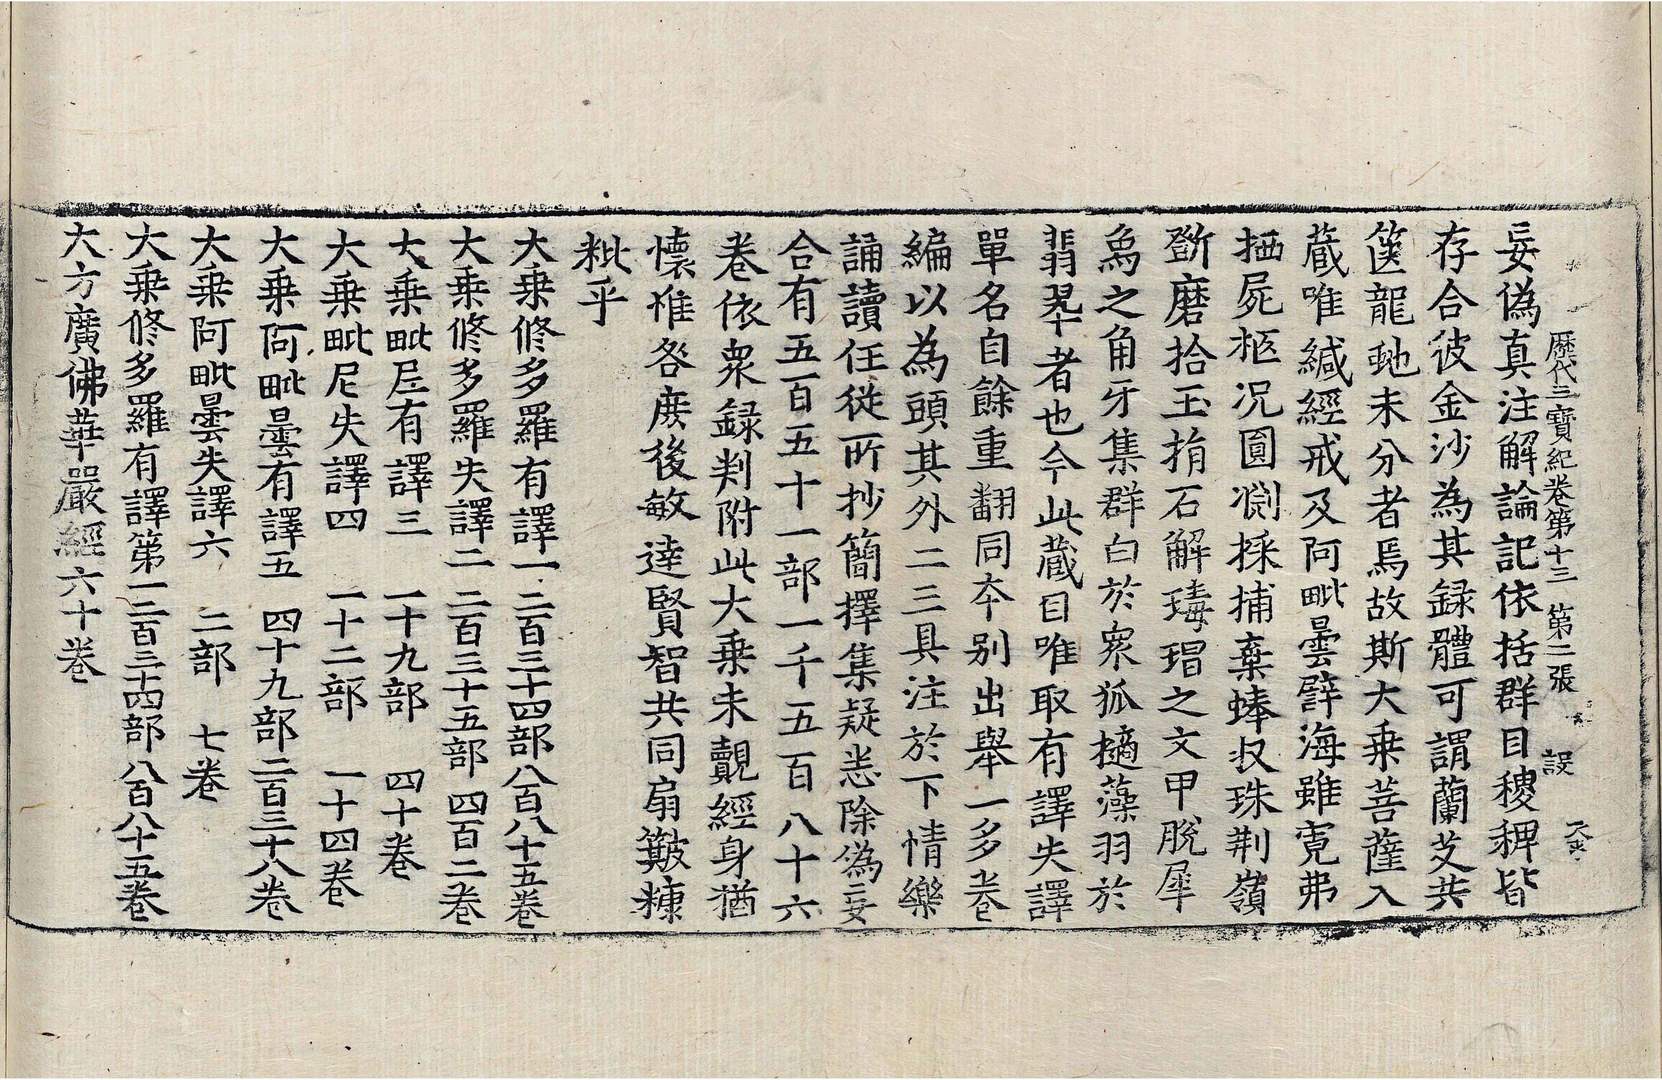 歷代三寶紀卷第十三 第二張 設
妄偽真注解論記依括群目稷稗皆
存合彼金沙為其録體可謂蘭艾共
篋龍虵未分者焉故斯大乗菩薩入
蔵唯緘經戒及阿毗曇譬海雖寬弗
栖屍柩況圓測採捕棄蜯収珠荆嶺
斵磨拾玉捐石解瑇瑁之文甲脫犀
爲之角牙集群白於衆狐擿藻羽於
翡翠者也今此蔵目唯取有譯失譯
單名自餘重翻同夲别出舉一多卷
編以為頭其外二三具注於下情樂
誦讀任從所抄簡擇集疑恙除偽妄
合有五百五十一部一千五百八十六
卷依衆録判附此大乗未覿經身猶
懷惟咎庻後敏達賢智共同扇簸糠
粃乎
大乗修多羅有譯一 二百三十四部八百八十五卷
大乗修多羅失譯二 二百三十五部 四百二卷
大乗毗尼有譯三 一十九部 四十卷
大乗毗尼失譯四 一十二部 一十四卷
大乗阿毗曇有譯五 四十九部二百三十八卷
大乗阿毗曇失譯六 二部 七卷
大乗修多羅有譯第一二百三十四部八百八十五卷
大方廣佛華嚴經六十卷